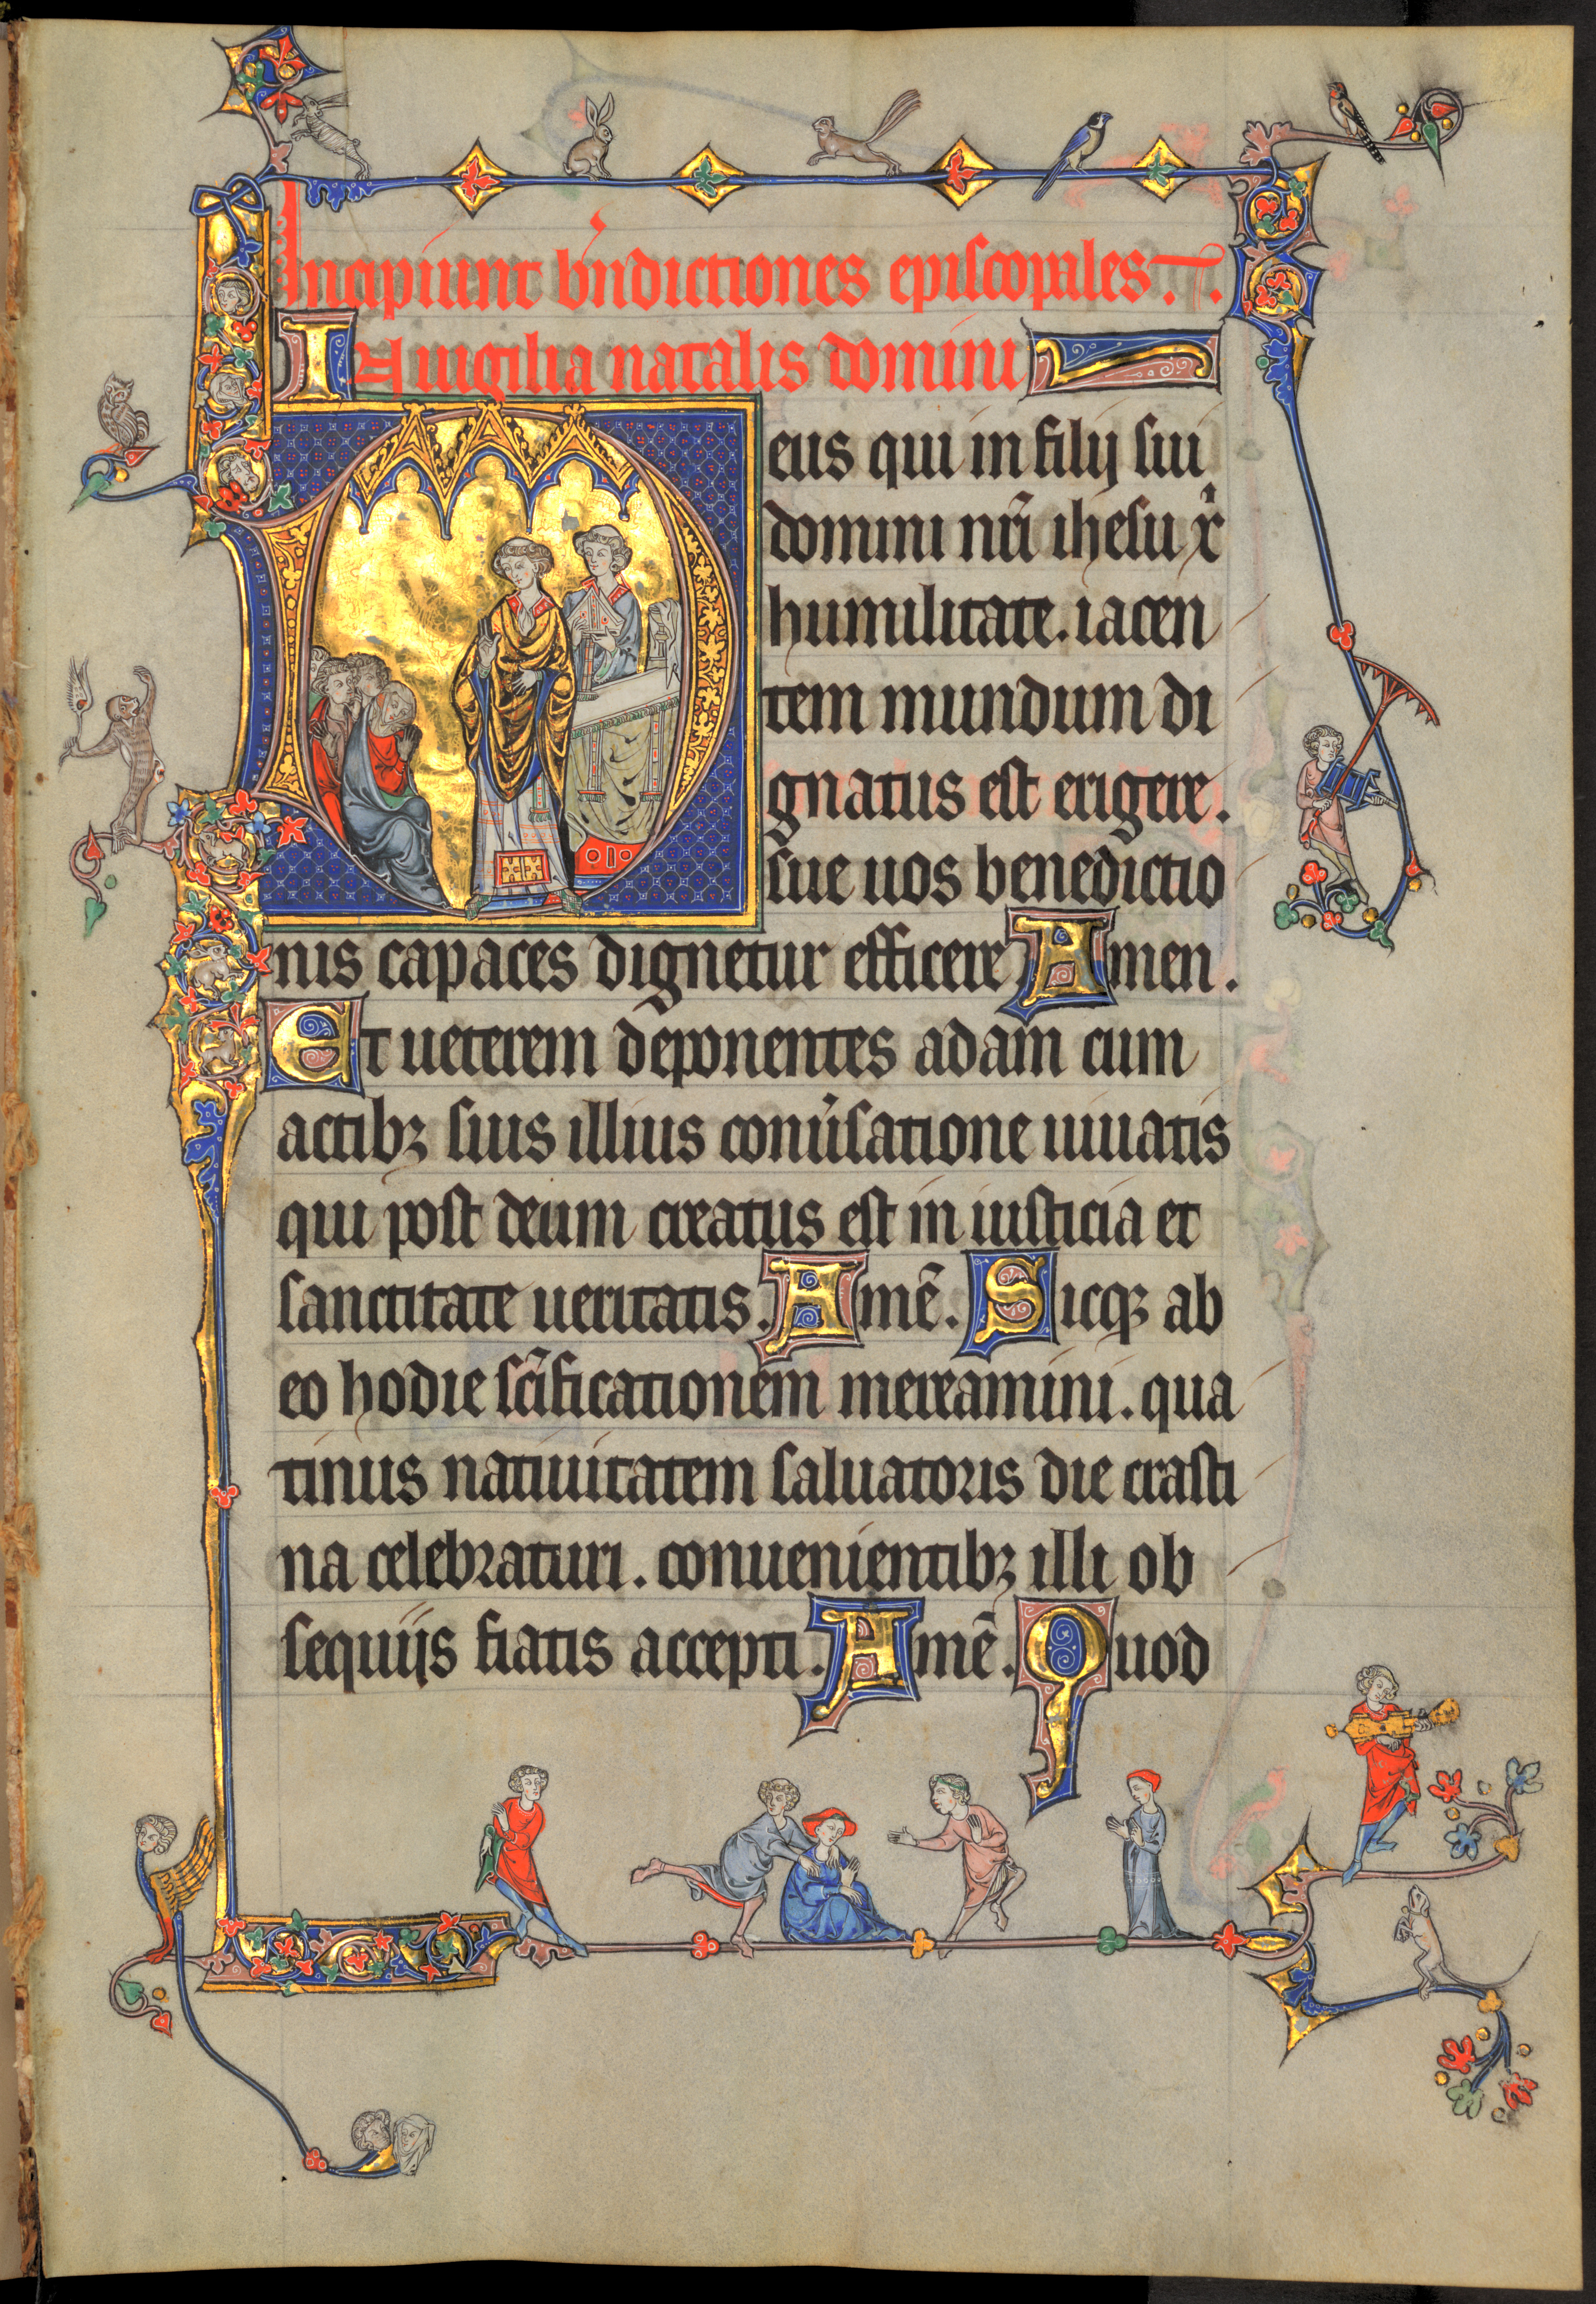 Incipiunt bn̄dictiones episcopales.
IN uigilia natalis domini
Deus qui in filij sui
domini nr̄i ihesu xp̄i
humilitate. iacen
tem mundum di
gnatus est erigere.
sue uos benedictio
nis capaces dignetur efficere. Amen.
Et ueterem deponentes adam cum
actibꝫ suis illius conu̓satione uiuatis
qui post deum creatus est in iusticia et
sanctitate ueritatis. Amē. Sicqꝫ ab
eo hodie sc̄ificationem mereamini. qua
tinus natiuitatem saluatoris die crasti
na celebraturi. conuenientibꝫ illi ob
sequijs fiatis accepti. Amē. Quod